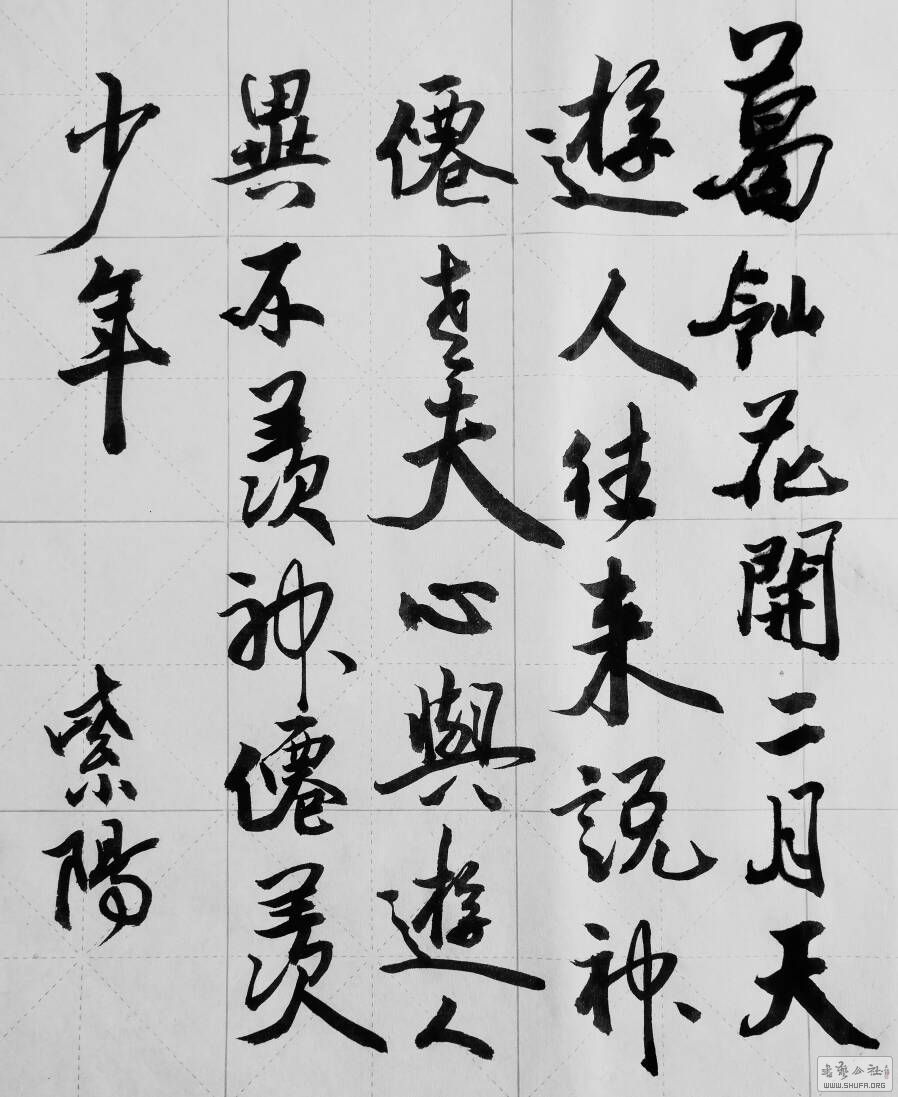 葛岭花開二月天
遊人往来說神
僊老夫心與遊人
異不羨神僊羨
少年 紫陽
書藝公社
WWW.SHUFA.ORG